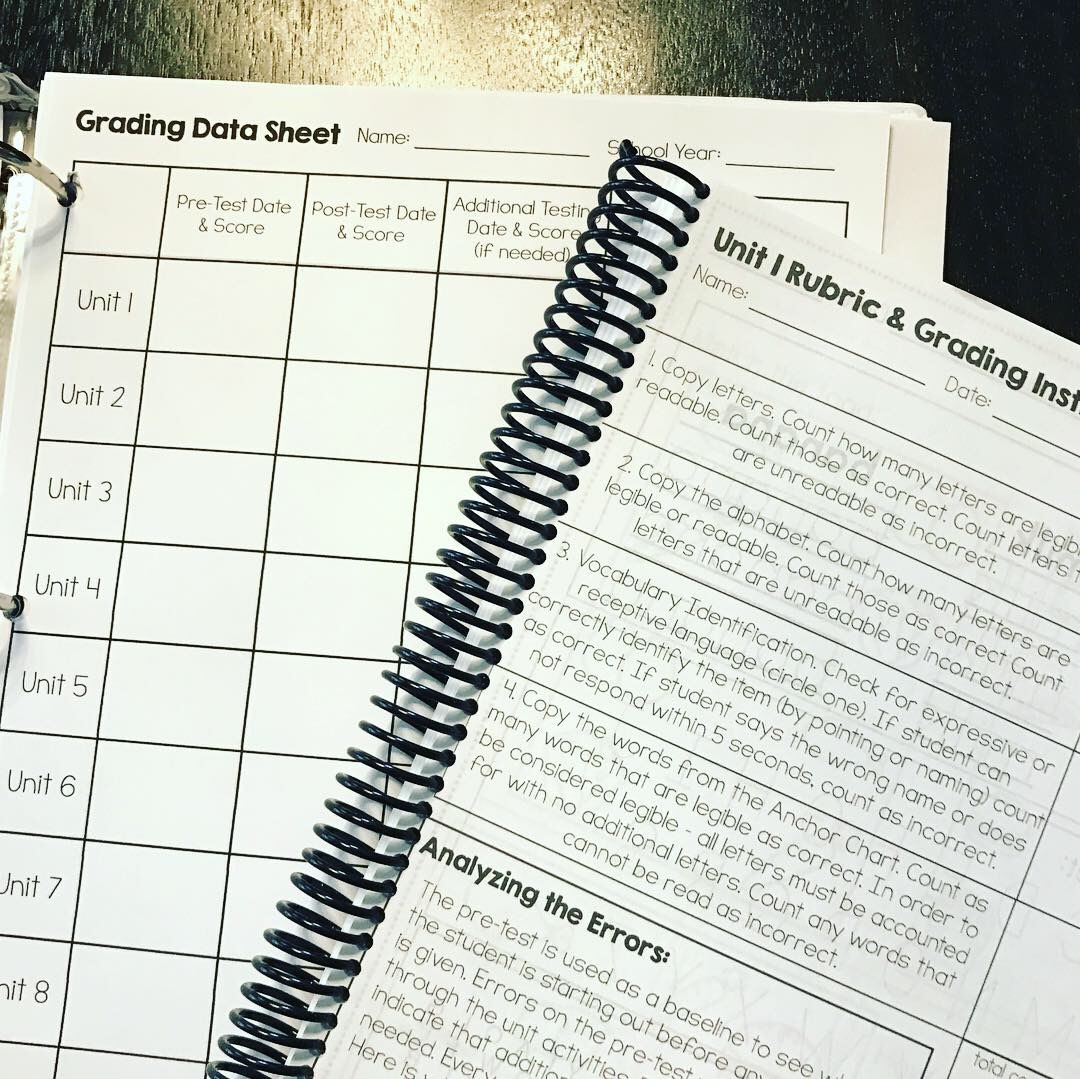 Grading Data Sheet Name:
School Year:
Pre-Test Date
& Score
Post-Test Date
& Score
Additional Testing
Date & Score
(if needed)
Unit 1
Unit 2
Unit 3
Unit 4
Unit 5
Unit 6
Unit 7
Unit 8
Unit 1 Rubric & Grading Inst
Name:
Date:
1. Copy letters. Count how many letters are legib
readable. Count those as correct. Count letters t
are unreadable as incorrect.
2. Copy the alphabet. Count how many letters are
legible or readable. Count those as correct Count
letters that are unreadable as incorrect.
3. Vocabulary Identification. Check for expressive or
receptive language (circle one). If student can
correctly identify the item (by pointing or naming) count
as correct. If student says the wrong name or does
not respond within 5 seconds, count as incorrect.
4. Copy the words from the Anchor Chart. Count as
many words that are legible as correct. In order to
be considered legible - all letters must be accounted
for with no additional letters. Count any words that
cannot be read as incorrect.
Analyzing the Errors:
The pre-test is used as a baseline to see
the student is starting out before any
is given. Errors on the pre-test
through the unit activities.
indicate that addition
needed. Every
Here is
total